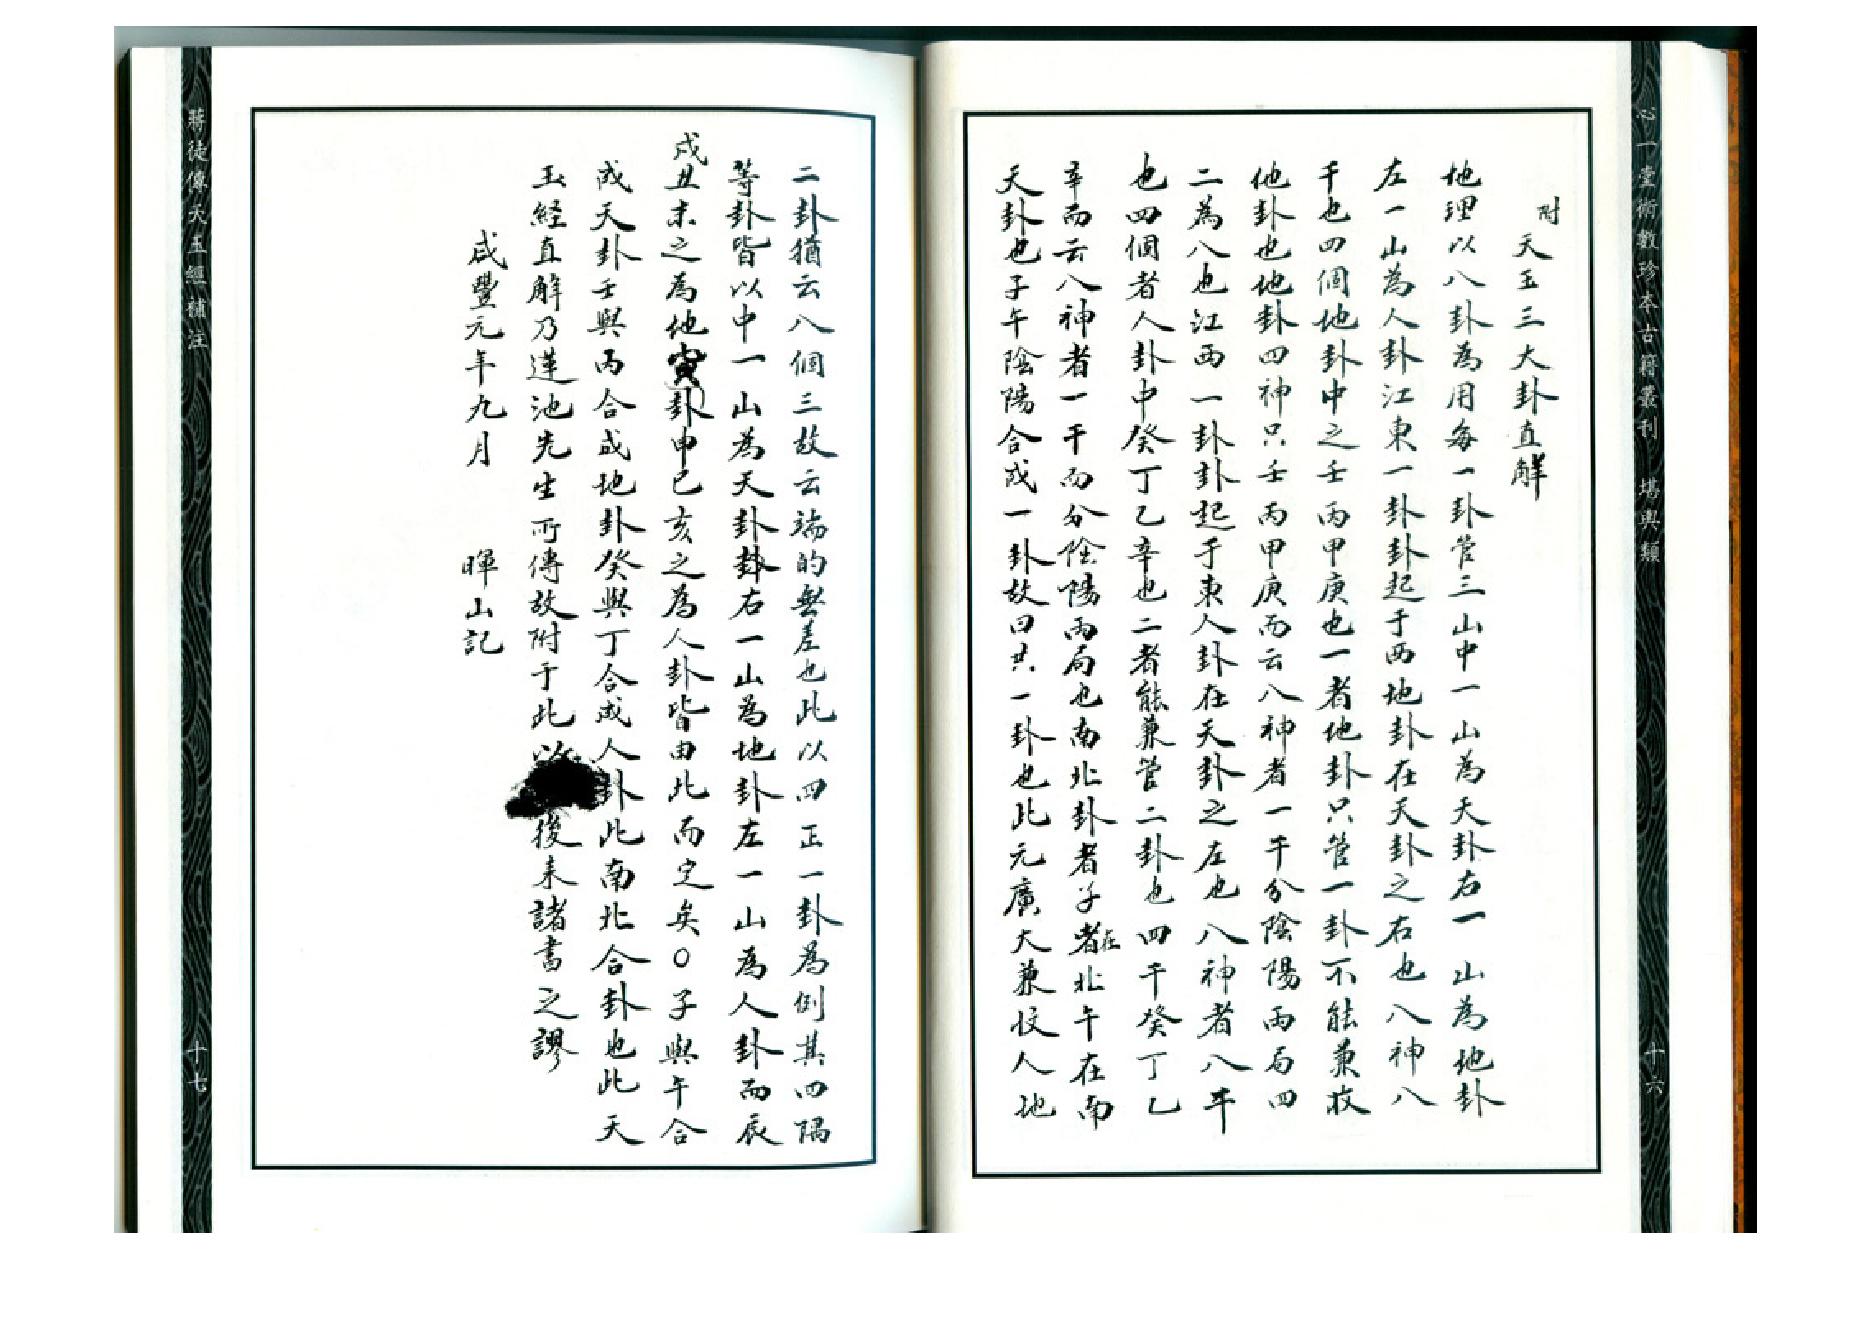 心一堂術數珍本古籍叢刊 堪輿類
十六
附天玉三大卦直解
地理以八卦為用每一卦管三山中一山為天卦右一山為地卦
左一山為人卦江東一卦卦起于西地卦在天卦之右也八神八
干也四個地卦中之壬丙甲庚也一者地卦只管一卦不能兼收
他卦也地卦四神只壬丙甲庚而云八神者一干分陰陽兩局四
二為八也江西一卦卦起于東人卦在天卦之左也八神者八干
也四個者人卦中癸丁乙辛也二者能兼管二卦也四干癸丁乙
辛而云八神者一干而分陰陽兩局也南北卦者子者在北午在南
天卦也子午陰陽合成一卦故曰共一卦也此元廣大兼收人地
二卦猶云八個三故云端的無差也此以四正一卦為例其四隅
等卦皆以中一山為天卦卦右一山為地卦左一山為人卦而辰
戌丑未之為地卦寅申巳亥之為人卦皆由此而定矣〇子與午合
成天卦壬與丙合成地卦癸與丁合成人卦此南北合卦也此天
玉經直解乃蓮池先生所傳故附于此以後來諸書之謬
咸豐元年九月 暉山記
蔣徒傳天玉經補注
十七